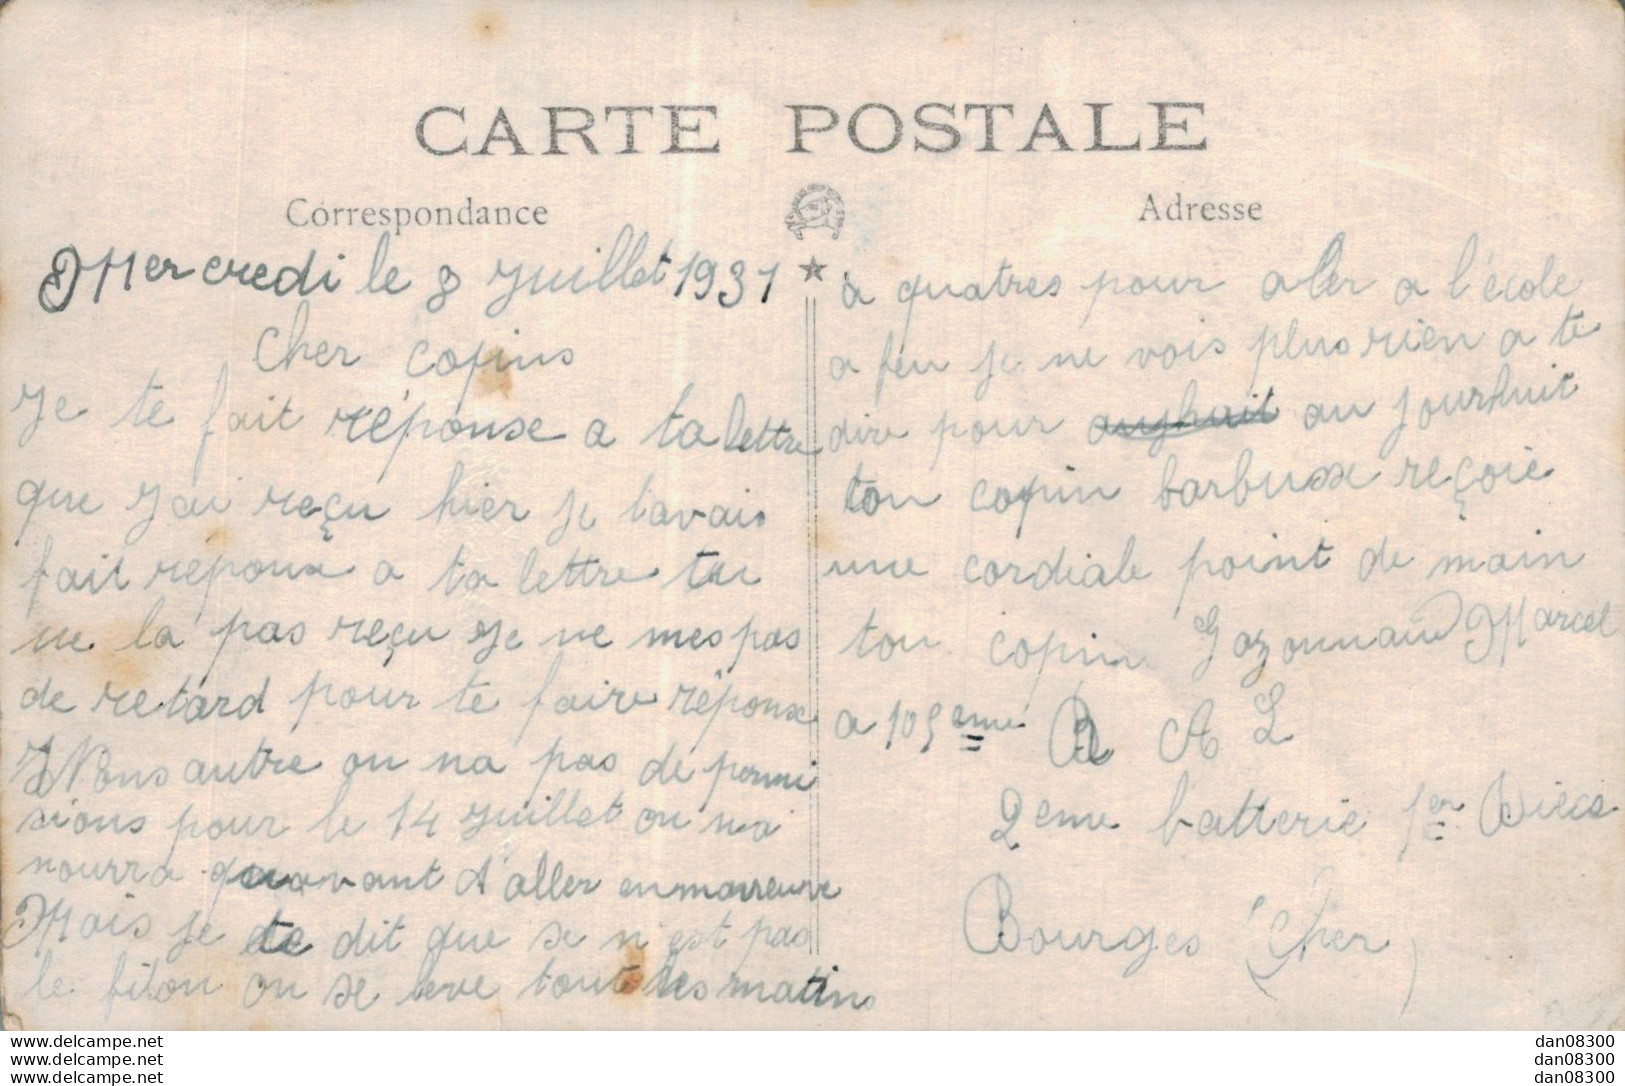 CARTE POSTALE
Correspondance
Mercredi le 8 Juillet 1931
Cher copins
Je te fait réponse a ta lettre
que J'ai reçu hier je lavais
fait réponse a ta lettre tu
ne la pas reçu Je ne mes pas
de retard pour te faire réponse
Nous autre on na pas de permi
sions pour le 14 Juillet on n'a
nourra avant d'aller en
Mais je te dit que se n'est pas
le filon on se leve tout les matins
Adresse
à quatres pour aler a l'école
a feu je ne vois plus rien a te
dire pour au jourhuit
ton copin barbusse reçoie
une cordiale point de main
ton copin Marcel
a 105eme R A L
2eme batterie 1er Pièce
Bourges (Cher)
dan08300
dan08300
dan08300
www.delcampe.net
www.delcampe.net
www.delcampe.net